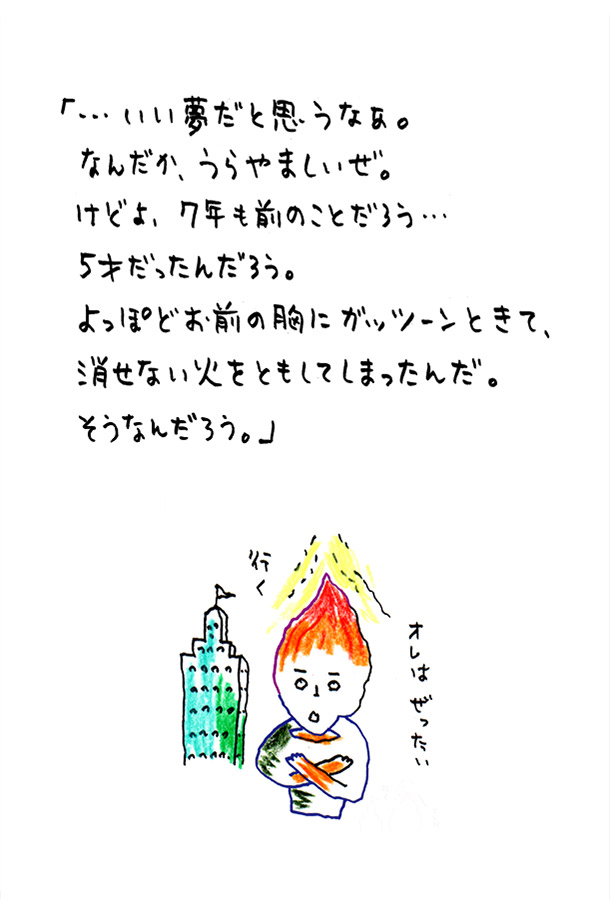 「…いい夢だと思うなぁ。
なんだか、うらやましいぜ。
けどよ、7年も前のことだろう…
5才だったんだろう。
よっぽどお前の胸にガッツーンときて、
消せない火をともしてしまったんだ。
そうなんだろう。」
オレはぜったい
行く